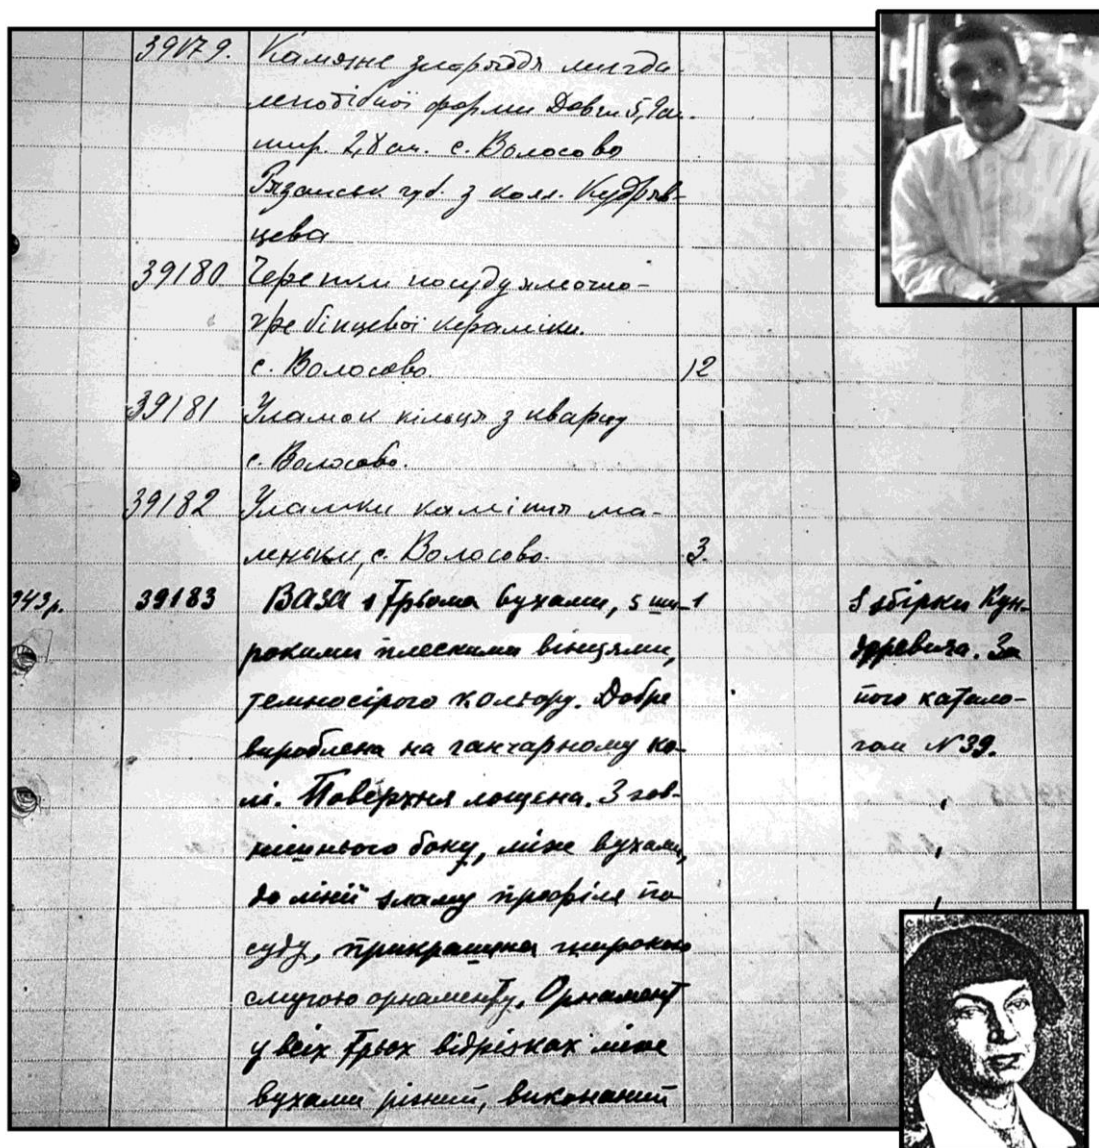 39179. Камяне знаряддя мигда-
леподібної форми Довж 5,9 см.
шир. 2,8 см. с. Волосово
Рязанськ губ. з кол. Кудряв-
цева
39180 Черепки посуду ямочно-
гребінцевої кераміки.
с. Волосово. 12
39181 Уламок кільця з кварцу
с. Волосово.
39182 Уламки каміння ма-
ленькі, с. Волосово. 3.
943р. 39183 Ваза з трьома вухами, з ши- 1 З збірки Кун-
рокими плескими вінцями, деревича. За
темносірого кольору. Добре його катало-
вироблена на ганчарному ко- гом N 39.
лі. Поверхня лощена. З зов-
нішнього боку, між вухами,
до лінії зламу профіля по-
суду, прикрашена широкою
смугою орнаменту. Орнамент
у всіх трьох відрізках між
вухами різний, виконаний